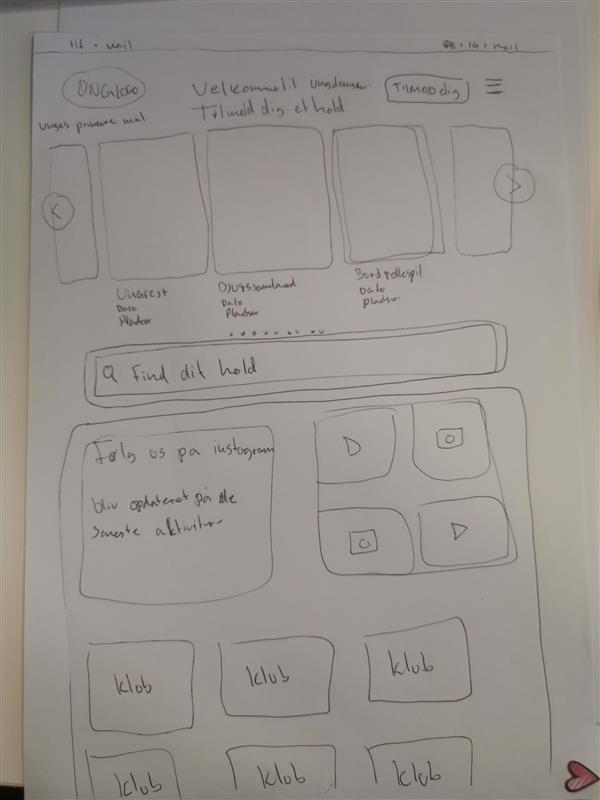 Tlf + mail
FB + IG + mail
UNGlogo
Velkommen til
Tilmeld dig et hold
TILMELD dig
Unges primære mål
<
>
Dato
Pladser
Dato
Pladser
Bordrollespil
Dato
pladser
Find dit hold
Følg os på instagram
bliv opdateret på de
seneste aktiviter
klub
klub
klub
klub
klub
klub